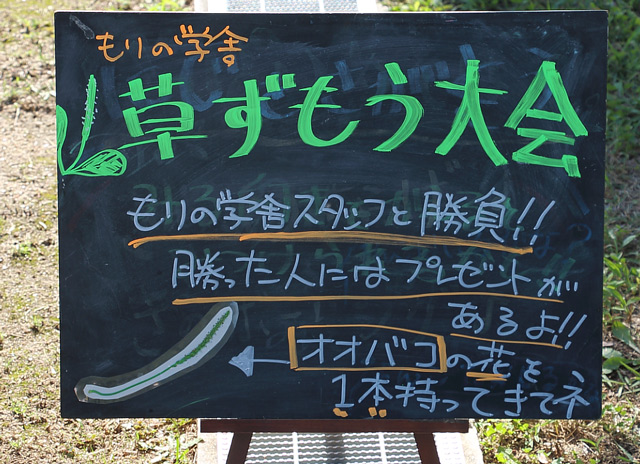 もりの学舎
草ずもう大会
もりの学舎スタッフと勝負!!
勝った人にはプレゼントが
あるよ!!
オオバコの花を
1本持ってきてネ